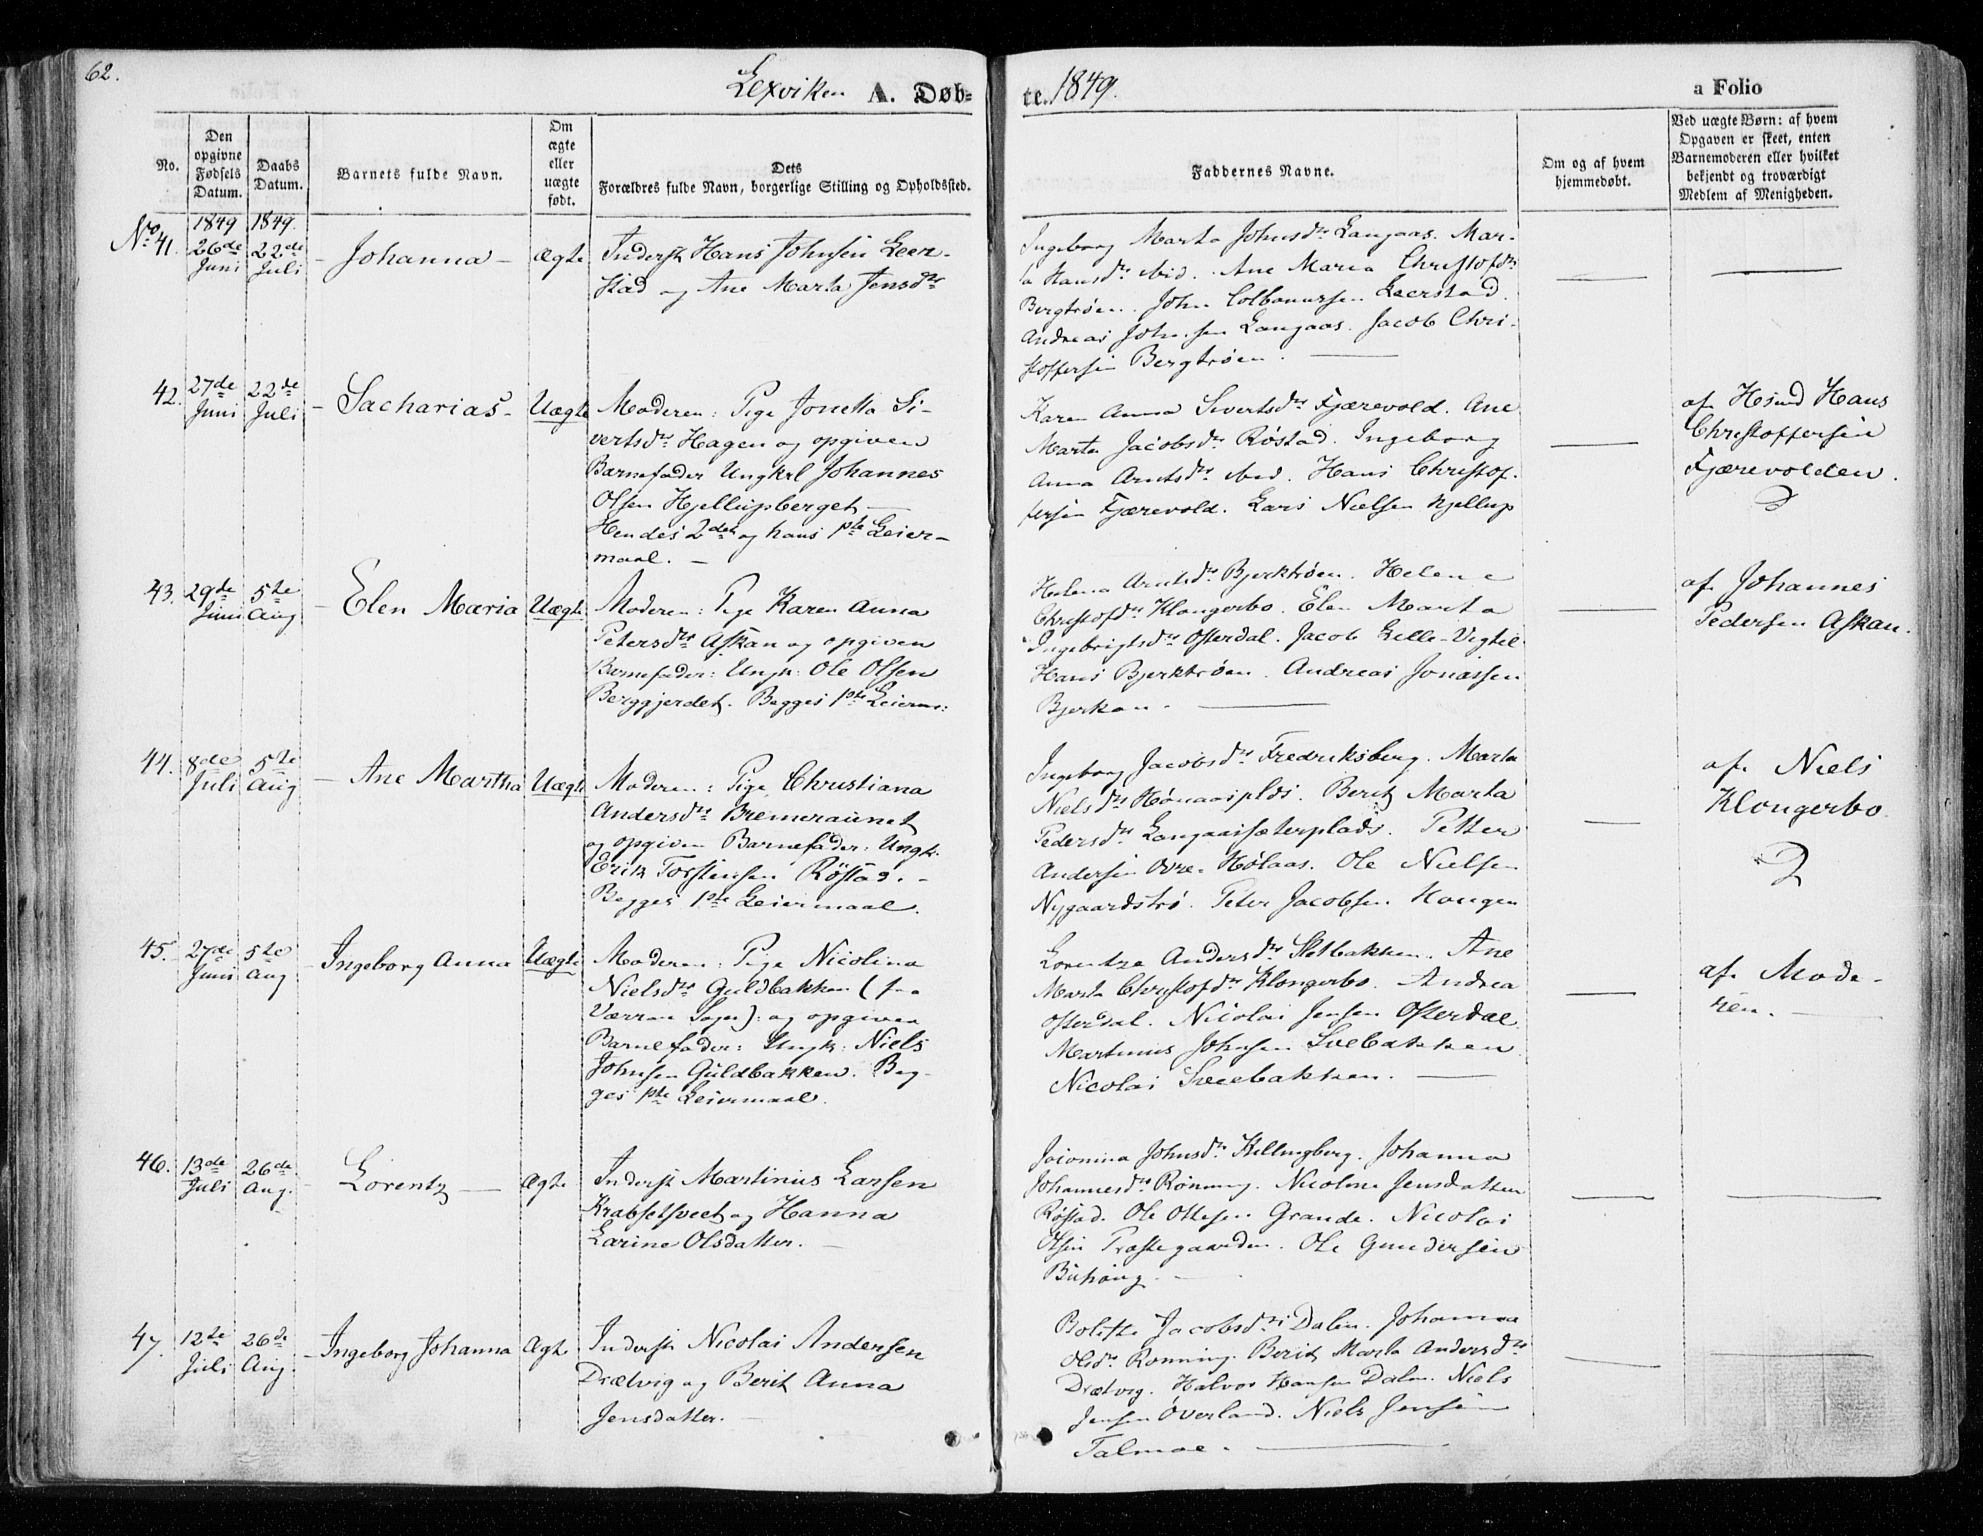 62.
Lexviken A. Døb=
te. 1849.
a Folio
No.
Den opgivne Fødsels Datum.
Daabs Datum.
Barnets fulde Navn.
Om ægte eller uægte født.
Dets Forældres fulde Navn, borgerlige Stilling og Opholdssted.
Faddernes Navne.
Om og af hvem hjemmedøbt.
Ved uægte Børn: af hvem Opgaven er skeet, enten Barnemoderen eller hvilket bekjendt og troværdigt Medlem af Menigheden.
No 41.
1849 26de Juni
1849. 22de Juli
Johanna
Ægte
Inderst Hans Johnsen Leer-
stad og Ane Marta Jensdtr
Ingeborg Marta Johnsdtr Langaas. Mar-
ta Hansdtr ibid. Ane Maria Christofdtr
Bergtrøen. John Colbanussen Leerstad.
Andreas Johnsen Langaas. Jacob Chri-
stoffersen Bergtrøen.
42.
27de Juni
22de Juli
Sacharias
Uægte
Moderen: Pige Jonetta Si-
vertsdtr Hagen og opgiven
Barnefader Ungkrl Johannes
Olsen Hjellupsberget
Hendes 2det og hans 1ste Leier-
maal.
Karen Anna Sivertsdtr Fjærevold. Ane
Marta Jacobsdtr Røstad. Ingeborg
Anna Arntsdtr ibid. Hans Christof-
fersen Fjærevold. Lars Nielsen Hjellup
af Hsmd Hans
Christoffersen
Fjærevolden.
43.
29de Juni
5te Aug
Elen Maria
Uægte
Moderen: Pige Karen Anna
Petersdtr Askan og opgiven
Barnefader: Ungk: Ole Olsen
Berggjerdet. Begges 1ste Leierm:
Helena Arntsdtr Bjerktrøen. Helene
Christofdtr Klongerbo. Elen Marta
Ingebrigtsdtr Osterdal. Jacob Lille-Vigtil
Hans Bjerktrøen. Andreas Jonassen
Bjerkan.
af Johannes
Pedersen Askan.
44.
8de Juli
5te Aug
Ane Martha
Uægte
Moderen: Pige Christiana
Andersdtr Bremeraunet
og opgiven Barnefader: Ungk.
Erik Torstensen Röstad.
Begges 1ste Leiermaal.
Ingeborg Jacobsdtr Fredriksberg. Marta
Nielsdtr Hønaasplds. Berit Marta
Pedersdtr Langaassæterplads. Petter
Andersen Øvre-Hølaas. Ole Nielsen
Nygaardstrø. Peter Jacobsen Haugen
af Niels
Klongerbo.
45.
27de Juni
5te Aug
Ingeborg Anna
Uægte
Moderen: Pige Nicolina
Nielsdtr Guldbakken (fra
Værran Sogn): og opgiven
Barnefader: Ungk: Niels
Johnsen Guldbakken. Beg-
ges 1ste Leiermaal.
Lorentza Andersdtr Sletbakken. Ane
Marta Christofdtr Klongerbo. Andrea
Osterdal. Nicolai Jensen Osterdal
Martinus Johnsen Svebakken
Nicolai Sveebakken.
af Mode-
ren.
46.
13de Juli
26de Aug.
Lorentz
Ægte
Inderst Martinus Larsen
Krabsetsveet og Hanna
Larine Olsdatter.
Jacomina Johnsdtr Killingberg. Johanna
Johannesdtr Rönning. Nicoline Jensdatter
Røstad. Ole Ottesen Grande. Nicolai
Olsen Præstegaarden. Ole Gundersen
47.
12te Juli
26de Aug
Ingeborg Johanna
Ægte
Inderst Nicolai Andersen
Drætvig og Berit Anna
Jensdatter.
Jacobsdtr Dalen. Johanna
Olsdtr Ronning. Berit Marta Andersdtr
Drætvig. Halvor Hansen Dalen. Niels
Jensen Överland. Niels Jensen
Talmoe.